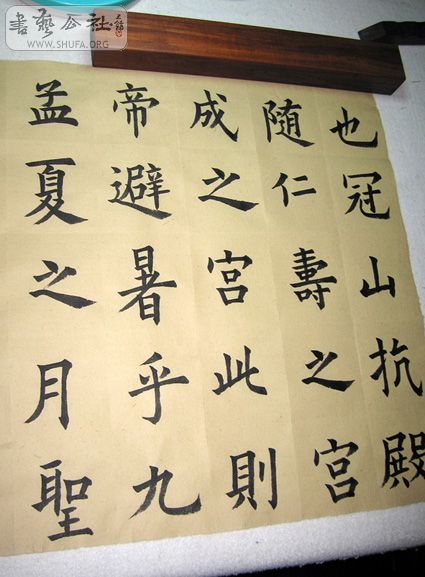 書藝公社
WWW.SHUFA.ORG
孟夏之月聖
帝避暑乎九
成之宮此則
随仁壽之宮
也冠山抗殿